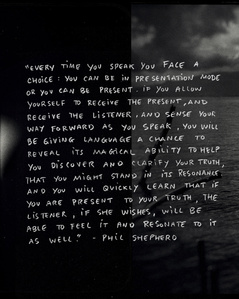 "EVERY TIME YOU SPEAK YOU FACE A
CHOICE: YOU CAN BE IN PRESENTATION MODE
OR YOU CAN BE PRESENT. IF YOU ALLOW
YOURSELF TO RECEIVE THE PRESENT, AND
RECEIVE THE LISTENER, AND SENSE YOUR
WAY FORWARD AS YOU SPEAK, YOU WILL
BE GIVING LANGUAGE A CHANCE TO
REVEAL ITS MAGICAL ABILITY TO HELP
YOU DISCOVER AND CLARIFY YOUR TRUTH,
THAT YOU MIGHT STAND IN ITS RESONANCE.
AND YOU WILL QUICKLY LEARN THAT IF
YOU ARE PRESENT TO YOUR TRUTH, THE
LISTENER, IF SHE WISHES, WILL BE
ABLE TO FEEL IT AND RESONATE TO IT
AS WELL." - PHIL SHEPHERD